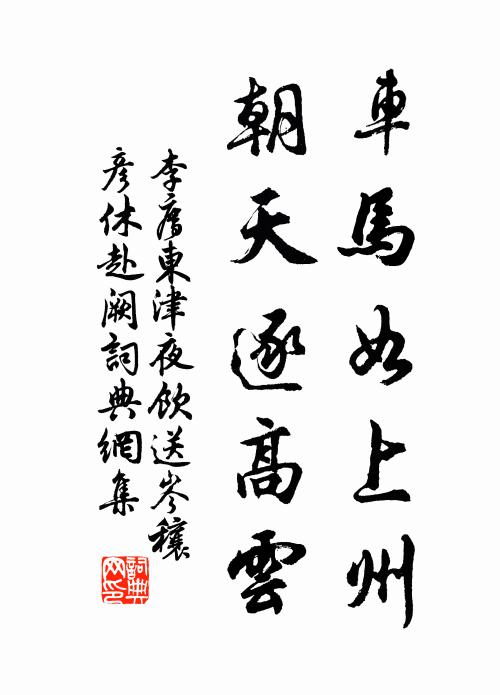 車馬如上州
朝天逐高雲
李廌東津夜飲送岑穰
彦休赴闕詞典網集
詞典
网印